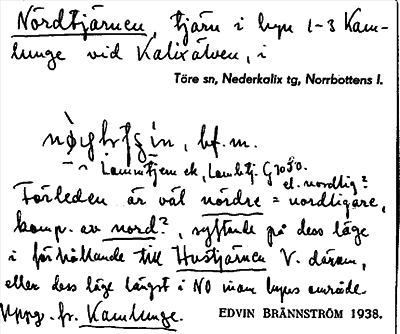 Nördtjärnen, tjärn i byn 1-3 Kam-
lunge vid Kalixälven, i
Töre sn, Nederkalix tg, Norrbottens l.
bf. m.
ek,
el. nordlig?
Förleden är väl nördre = nordligare,
komp. av nord?, syftande på dess läge
i förhållande till Hustjärnen V. därom,
eller dess läge längst i NO inom byns område.
Uppg. fr. Kamlunge. EDVIN BRÄNNSTRÖM 1938.